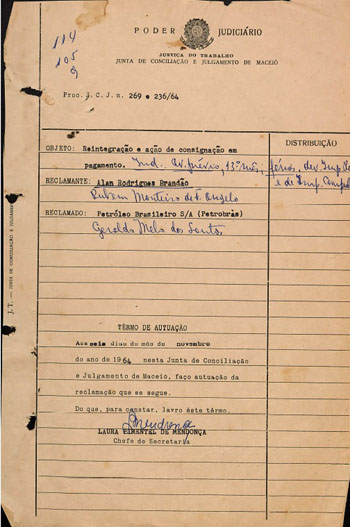 114
105
PODER JUDICIÁRIO
JUSTIÇA DO TRABALHO
JUNTA DE CONCILIAÇÃO E JULGAMENTO DE MACEIÓ
Proc. J. C. J. n. 269 e 236/64
DISTRIBUIÇÃO
OBJETO: Reintegração e ação de consignação em
pagamento. Ind. Av. prévio, 13º mês, férias, dev. Imp.
e de Imp.
RECLAMANTE: Alan Rodrigues Brandão
Rubem Monteiro de F. Angelo
RECLAMADO: Petróleo Brasileiro S/A (Petrobrás)
Geraldo Melo dos Santos
J.T. — JUNTA DE CONCILIAÇÃO E JULGAMENTO
TÊRMO DE AUTUAÇÃO
Aos seis dias do mês de novembro
do ano de 1964 nesta Junta de Conciliação
e Julgamento de Maceió, faço autuação da
reclamação que se segue.
Do que, para constar, lavro êste têrmo.
LAURA PIMENTEL DE MENDONÇA
Chefe de Secretaria